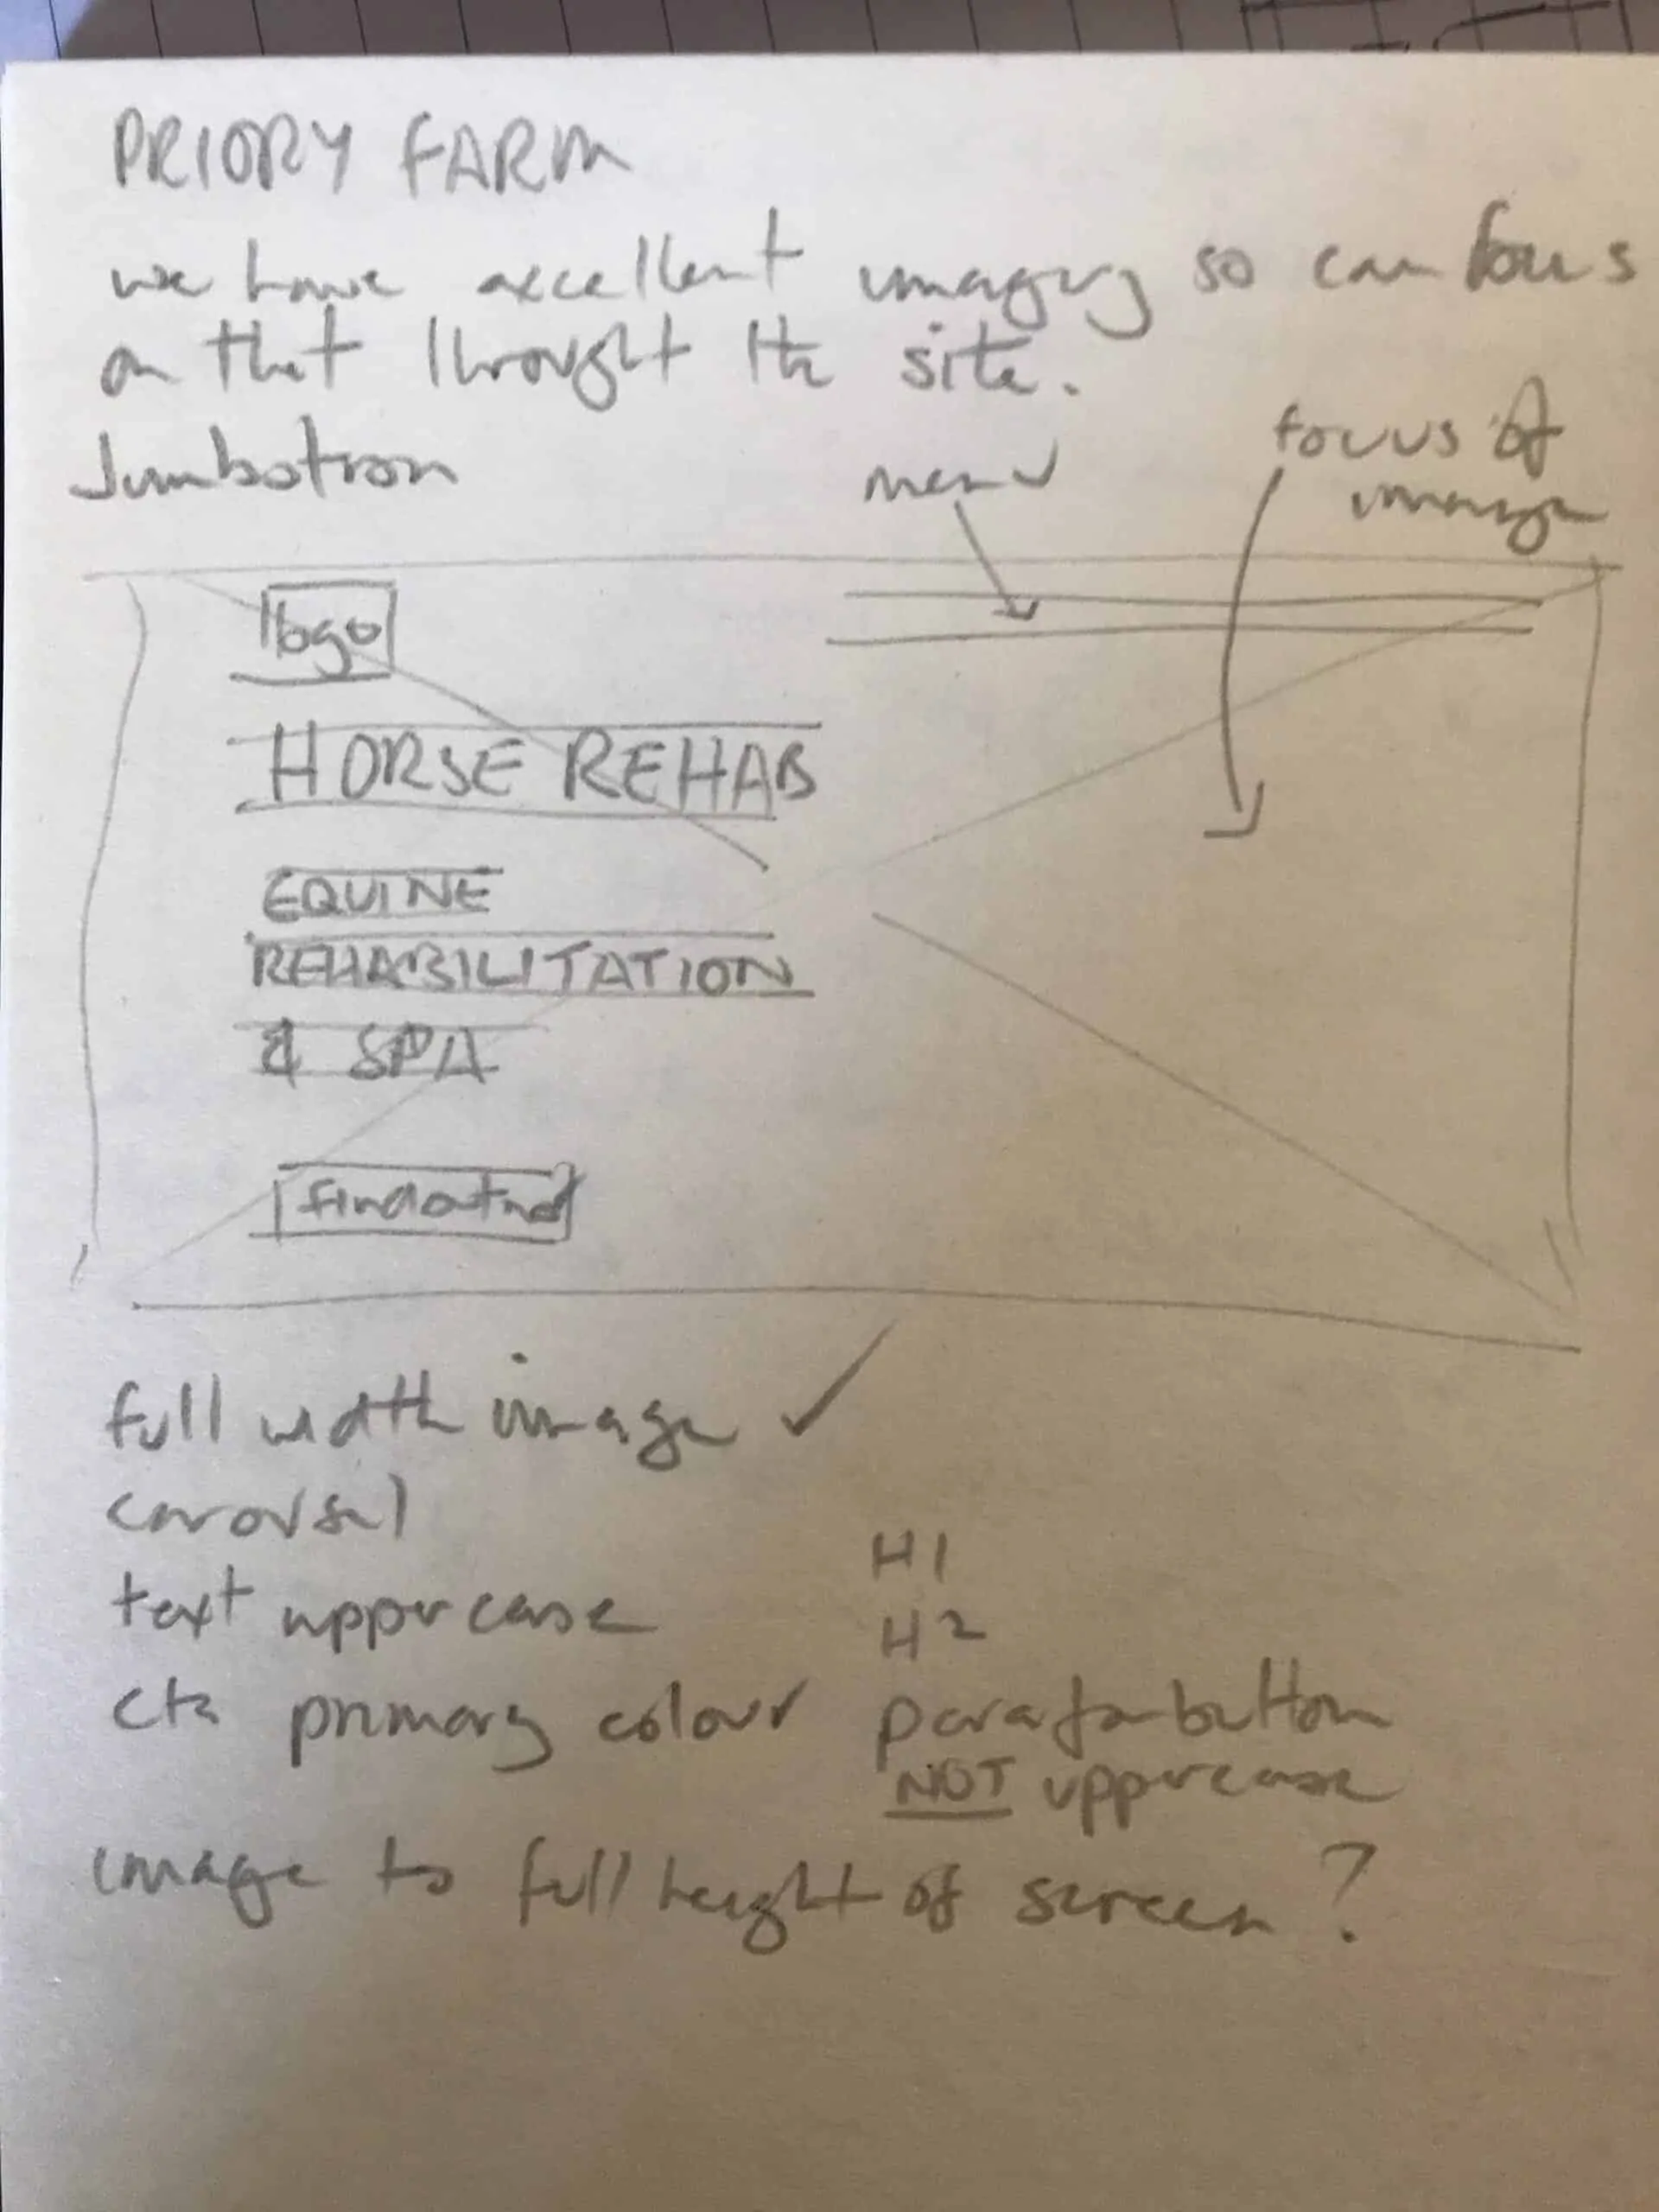 PRIORY FARM
we have excellent imagery so can focus
on that throught the site.
Jumbotron
menu
focus of
image
logo
HORSE REHAB
EQUINE
REHABILITATION
& SPA
find out
full width image ✓
carousel
text uppercase
H1
H2
cta primary colour
para for button
NOT uppercase
image to full height of screen?